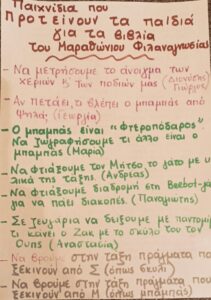 Παιχνίδια που
προτείνουν τα παιδιά
για τα βιβλία
του Μαραθώνιου Φιλαναγνωσίας
- Να μετρήσουμε το άνοιγμα των
χεριών & των ποδιών μας (Διονύσης
Γιώργος
- Αν πετάει, τι βλέπει ο μπαμπάς από
ψηλά; (Γεωργία)
- Ο μπαμπάς είναι "Φτερωπόδαρος"
Να ζωγραφήσουμε τι άλλο είναι ο
μπαμπάς (Μαρία)
- Να φτιάξουμε τον Μήτσο το γάτο με υ-
λικά της τάξης (Ανδρέας)
- Να φτιάξουμε διαδρομή στη Beebot
για να πάει διακοπές. (Παναγιώτης)
- Σε ζευγάρια να δείξουμε με παντομί
τι κάνει ο Ζακ με το σκύλο του τον
Ουπς (Αναστασία)
- Να βρούμε στην τάξη πράγματα που
ξεκινούν από Σ (όπως σκύλος)
- Να βρούμε στην τάξη πράγματα που
ξεκινούν από Μ (όπως μπαμπάς)